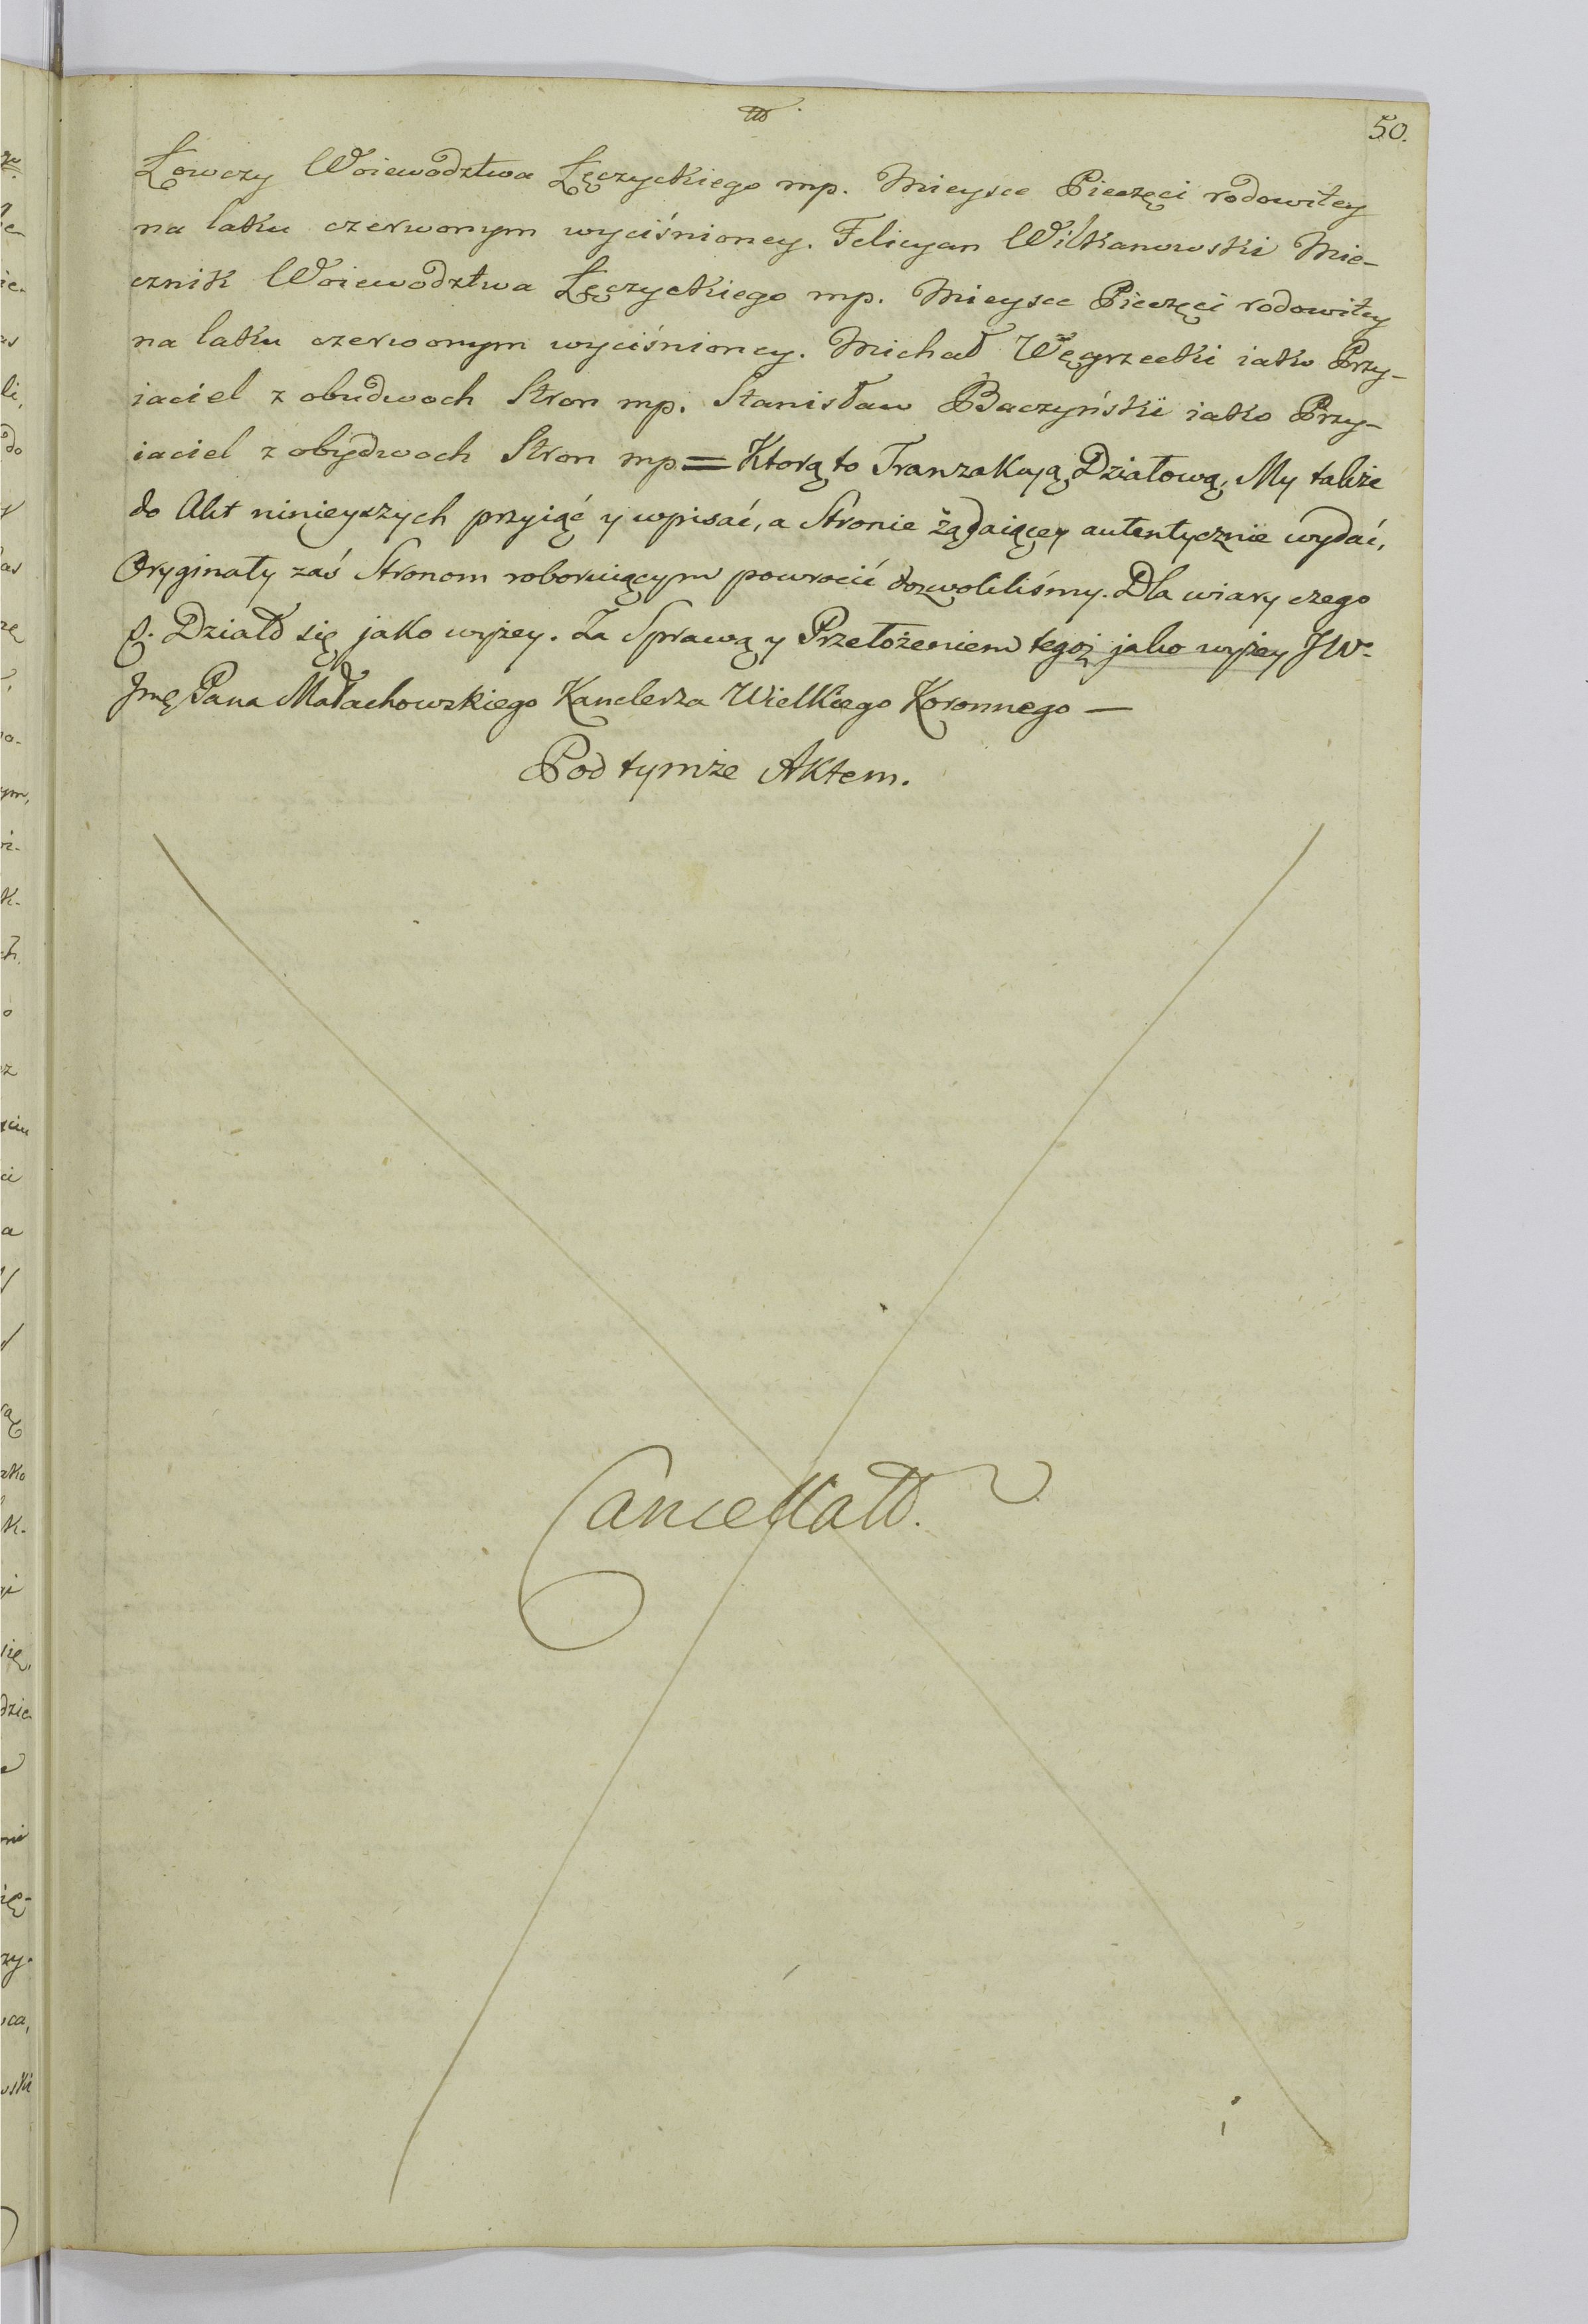 50.
Łowczy Woiewodztwa Łęczyckiego mp. Mieysce Pieczęci rodowitey
na laku czerwonym wyciśnioney. Felicyan Wilkanowski Mie-
cznik Woiewodztwa Łęczyckiego mp. Mieysce Pieczęci rodowitey
na laku czerwonym wyciśnioney. Michał Węgrzecki iako Przy-
iaciel z obudwoch Stron mp. Stanisław Baczyński iako Przy-
iaciel z obydwoch Stron mp = Ktorą to Tranzakcyą Działową, My także
do Akt ninieyszych przyiąć y wpisać, a Stronie żądaiącey autentycznie wydać,
Oryginały zaś Stronom roboruiącym powrocić dozwoliliśmy. Dla wiary czego
Działo się jako wyżey. Za Sprawą y Przełożeniem tegoż jako wyżey JW.
Jmę Pana Małachowskiego Kanclerza Wielkiego Koronnego —
Pod tymże Aktem.
Cancellatd.